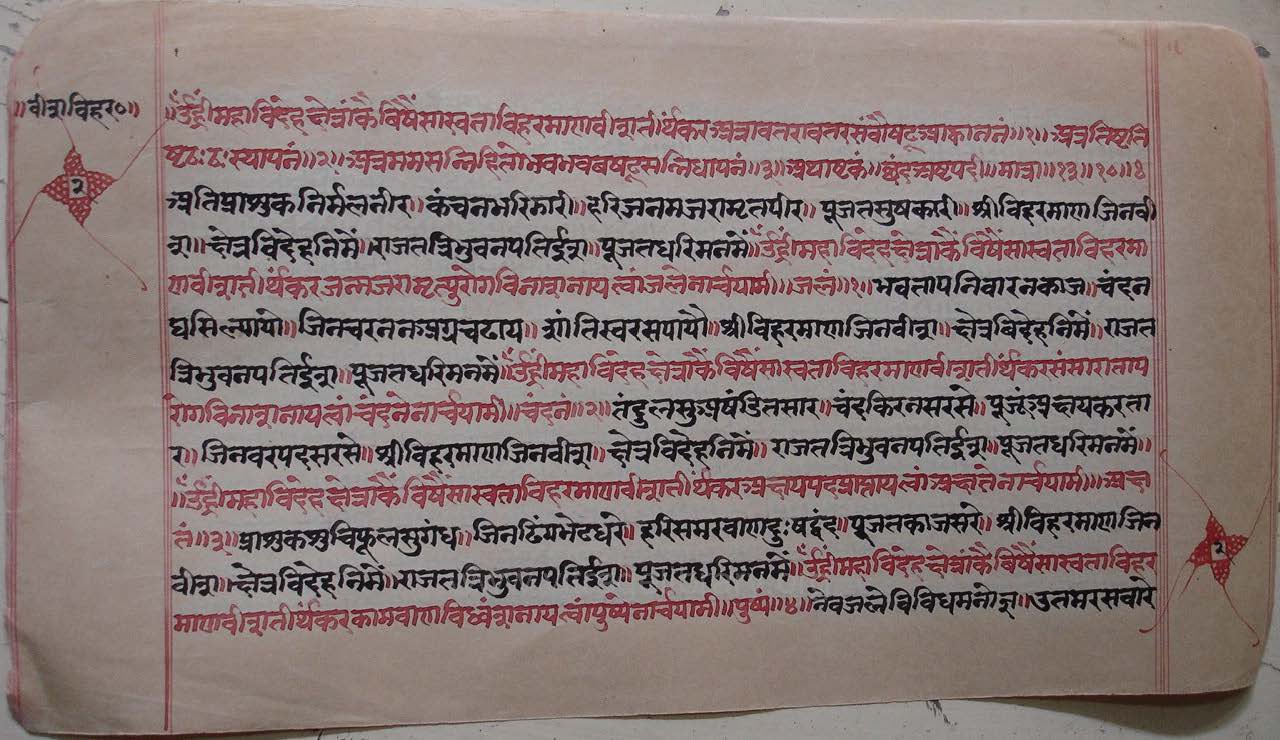 ॥वीशविहर०॥
॥ॐह्रीं महाविदेहक्षेत्रांकै विषैं सास्वता विहरमाणवीशतीर्थंकर अत्रावतरावतर संवौषट् आह्वाननं॥१॥ अत्र तिष्ट ति
ष्ट ठः ठः स्थापनं॥२॥ अत्र मम सन्निहितो भव भव बषट् सन्निधापनं॥३॥ अथाष्टकं॥ छंद अष्टपदी॥ मात्रा॥१३॥१०॥४
अतिप्राशुक निर्मलनीर॥ कंचनभरिझारी॥ हरिजनमजरामृतपीर॥ पूजतसुषकारी॥ श्रीविहरमाणजिनवी
श॥ क्षेत्रविदेहनिमें॥ राजतत्रिभुवनपतिईश॥ पूजतधरिमनमें॥ ॐह्रीं महाविदेहक्षेत्रांकै विषैं सास्वता विहरमा
णवीशतीर्थंकर जन्मजरामृत्युरोगविनाशनाय त्वां जलेनार्चयामी॥ जलं॥१॥ भवतापनिवारनकाज॥ चंदन
घसिल्यायो॥ जिनचरनन अग्रचढाय॥ शांतिस्वरसपायौ॥ श्रीविहरमाणजिनवीश॥ क्षेत्रविदेहनिमें॥ राजत
त्रिभुवनपतिईश॥ पूजतधरिमनमें॥ ॐह्रीं महाविदेहक्षेत्रांकै विषैं सास्वता विहरमाणवीशतीर्थंकर संसाराताप
रोगविनाशनाय त्वां चंदनेनार्चयामी॥ चंदनं॥२॥ तंदुलसुअषंडितसार॥ चंदकिरनसरसे॥ पूजूंअक्षयकरता
र॥ जिनवरपदसरसे॥ श्रीविहरमाणजिनवीश॥ क्षेत्रविदेहनिमें॥ राजतत्रिभुवनपतिईश॥ पूजतधरिमनमें॥
॥ॐह्रीं महाविदेहक्षेत्रांकै विषैं सास्वता विहरमाणवीशतीर्थंकर अक्षयपदप्राप्ताय त्वां अक्षतेनार्चयामी॥ अक्ष
तं॥३॥ प्राशुकशुचिफूलसुगंध॥ जिनढिंगभेटधरे॥ हरिसमरवाणदुःषद्वंद॥ पूजतकाजसरे॥ श्रीविहरमाणजिन
वीश॥ क्षेत्रविदेहनिमें॥ राजतत्रिभुवनपतिईश॥ पूजतधरिमनमें॥ ॐह्रीं महाविदेहक्षेत्रांकै विषैं सास्वता विहर
माणवीशतीर्थंकर कामवाणविध्वंशनाय त्वां पुष्पेनार्चयामी॥ पुष्पं॥४॥ नेवजलेविविधमनोज्ञ॥ उतमरसवारे
२
२